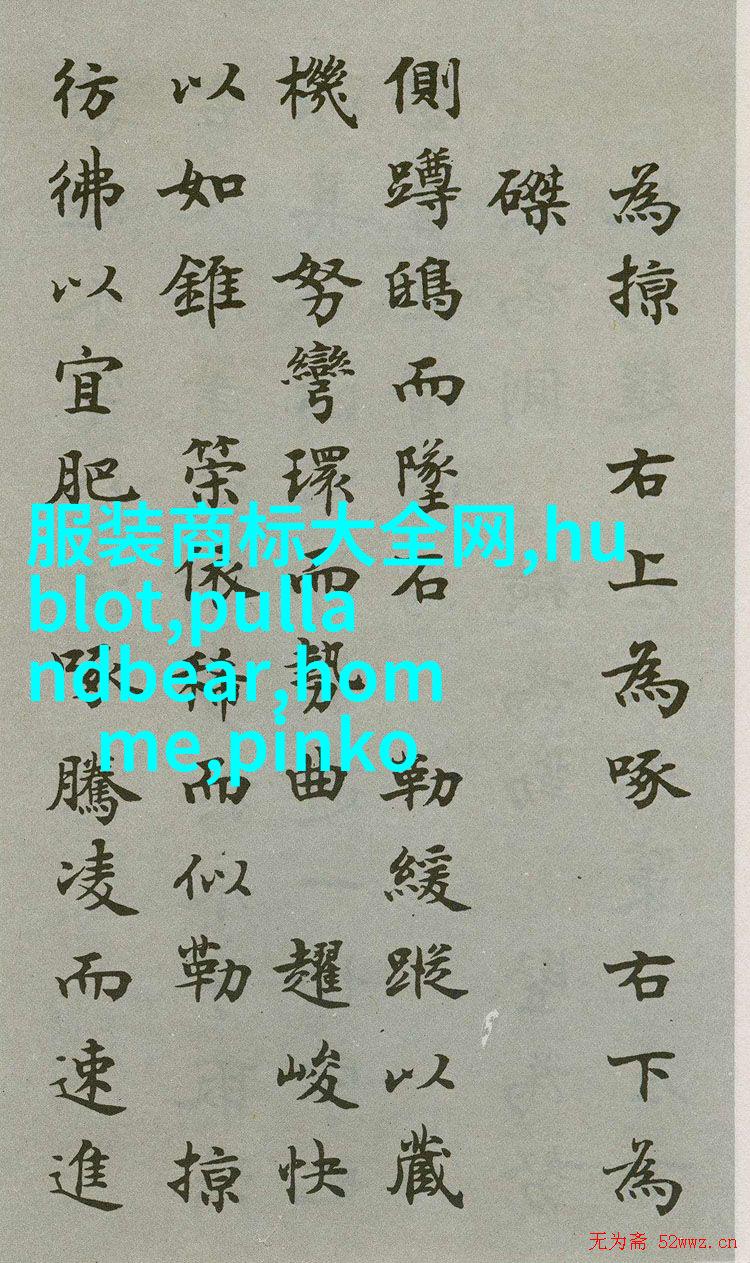 為掠 右上為啄 右下為
磔
側蹲鴟而墜石 勒緩蹤以藏
機 努彎環而勢曲 趯峻快
以如錐 策依稀而似勒 掠
彷彿以宜肥 啄騰凌而速進
服装商标大全网,hu
blot,pulla
ndbear,hom
me,pinko
无为斋 52wwz.cn